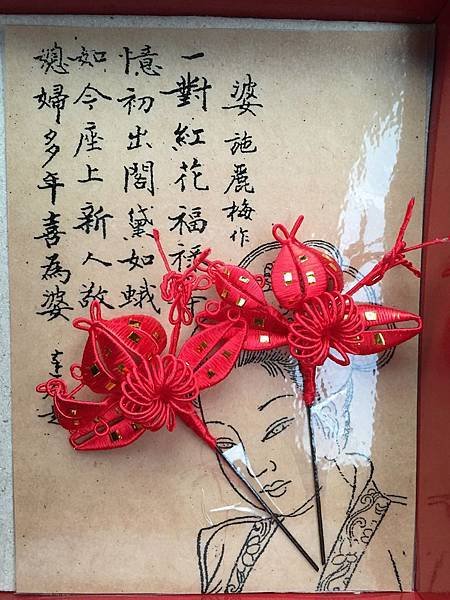 婆 施麗梅作
一對紅花福祿
憶初出閣黛如蛾
如今座上新人敬
媳婦多年喜為婆